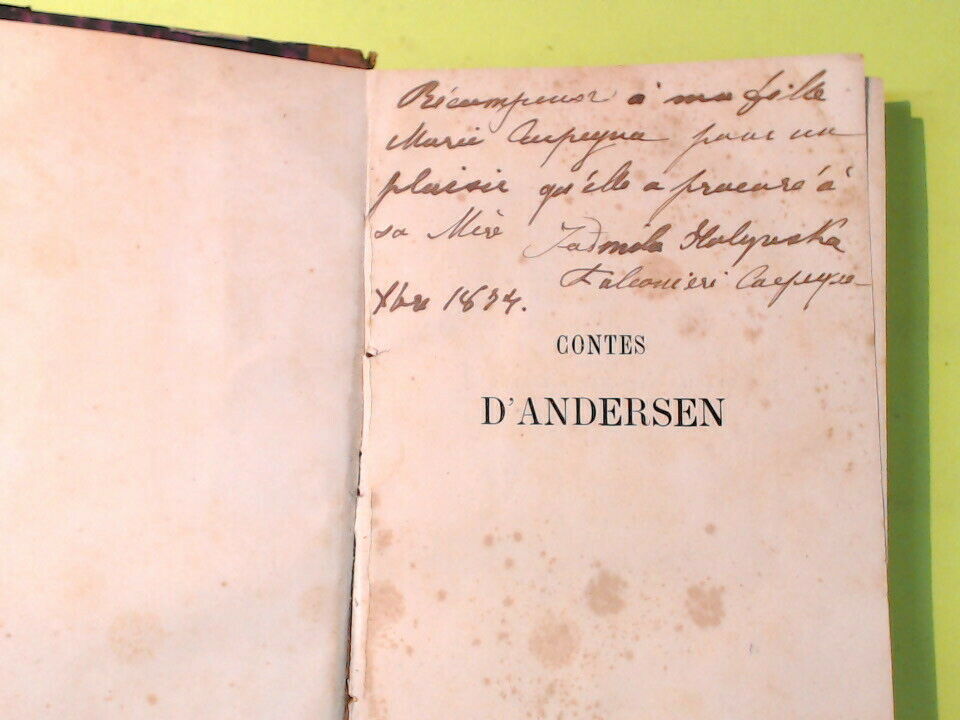 Récompense à ma fille
Marie Carpegna pour un
plaisir qu'elle a procuré à
sa Mère Ludmila Holynska
Falconieri Carpegna
Xbre 18
CONTES
D'ANDERSEN